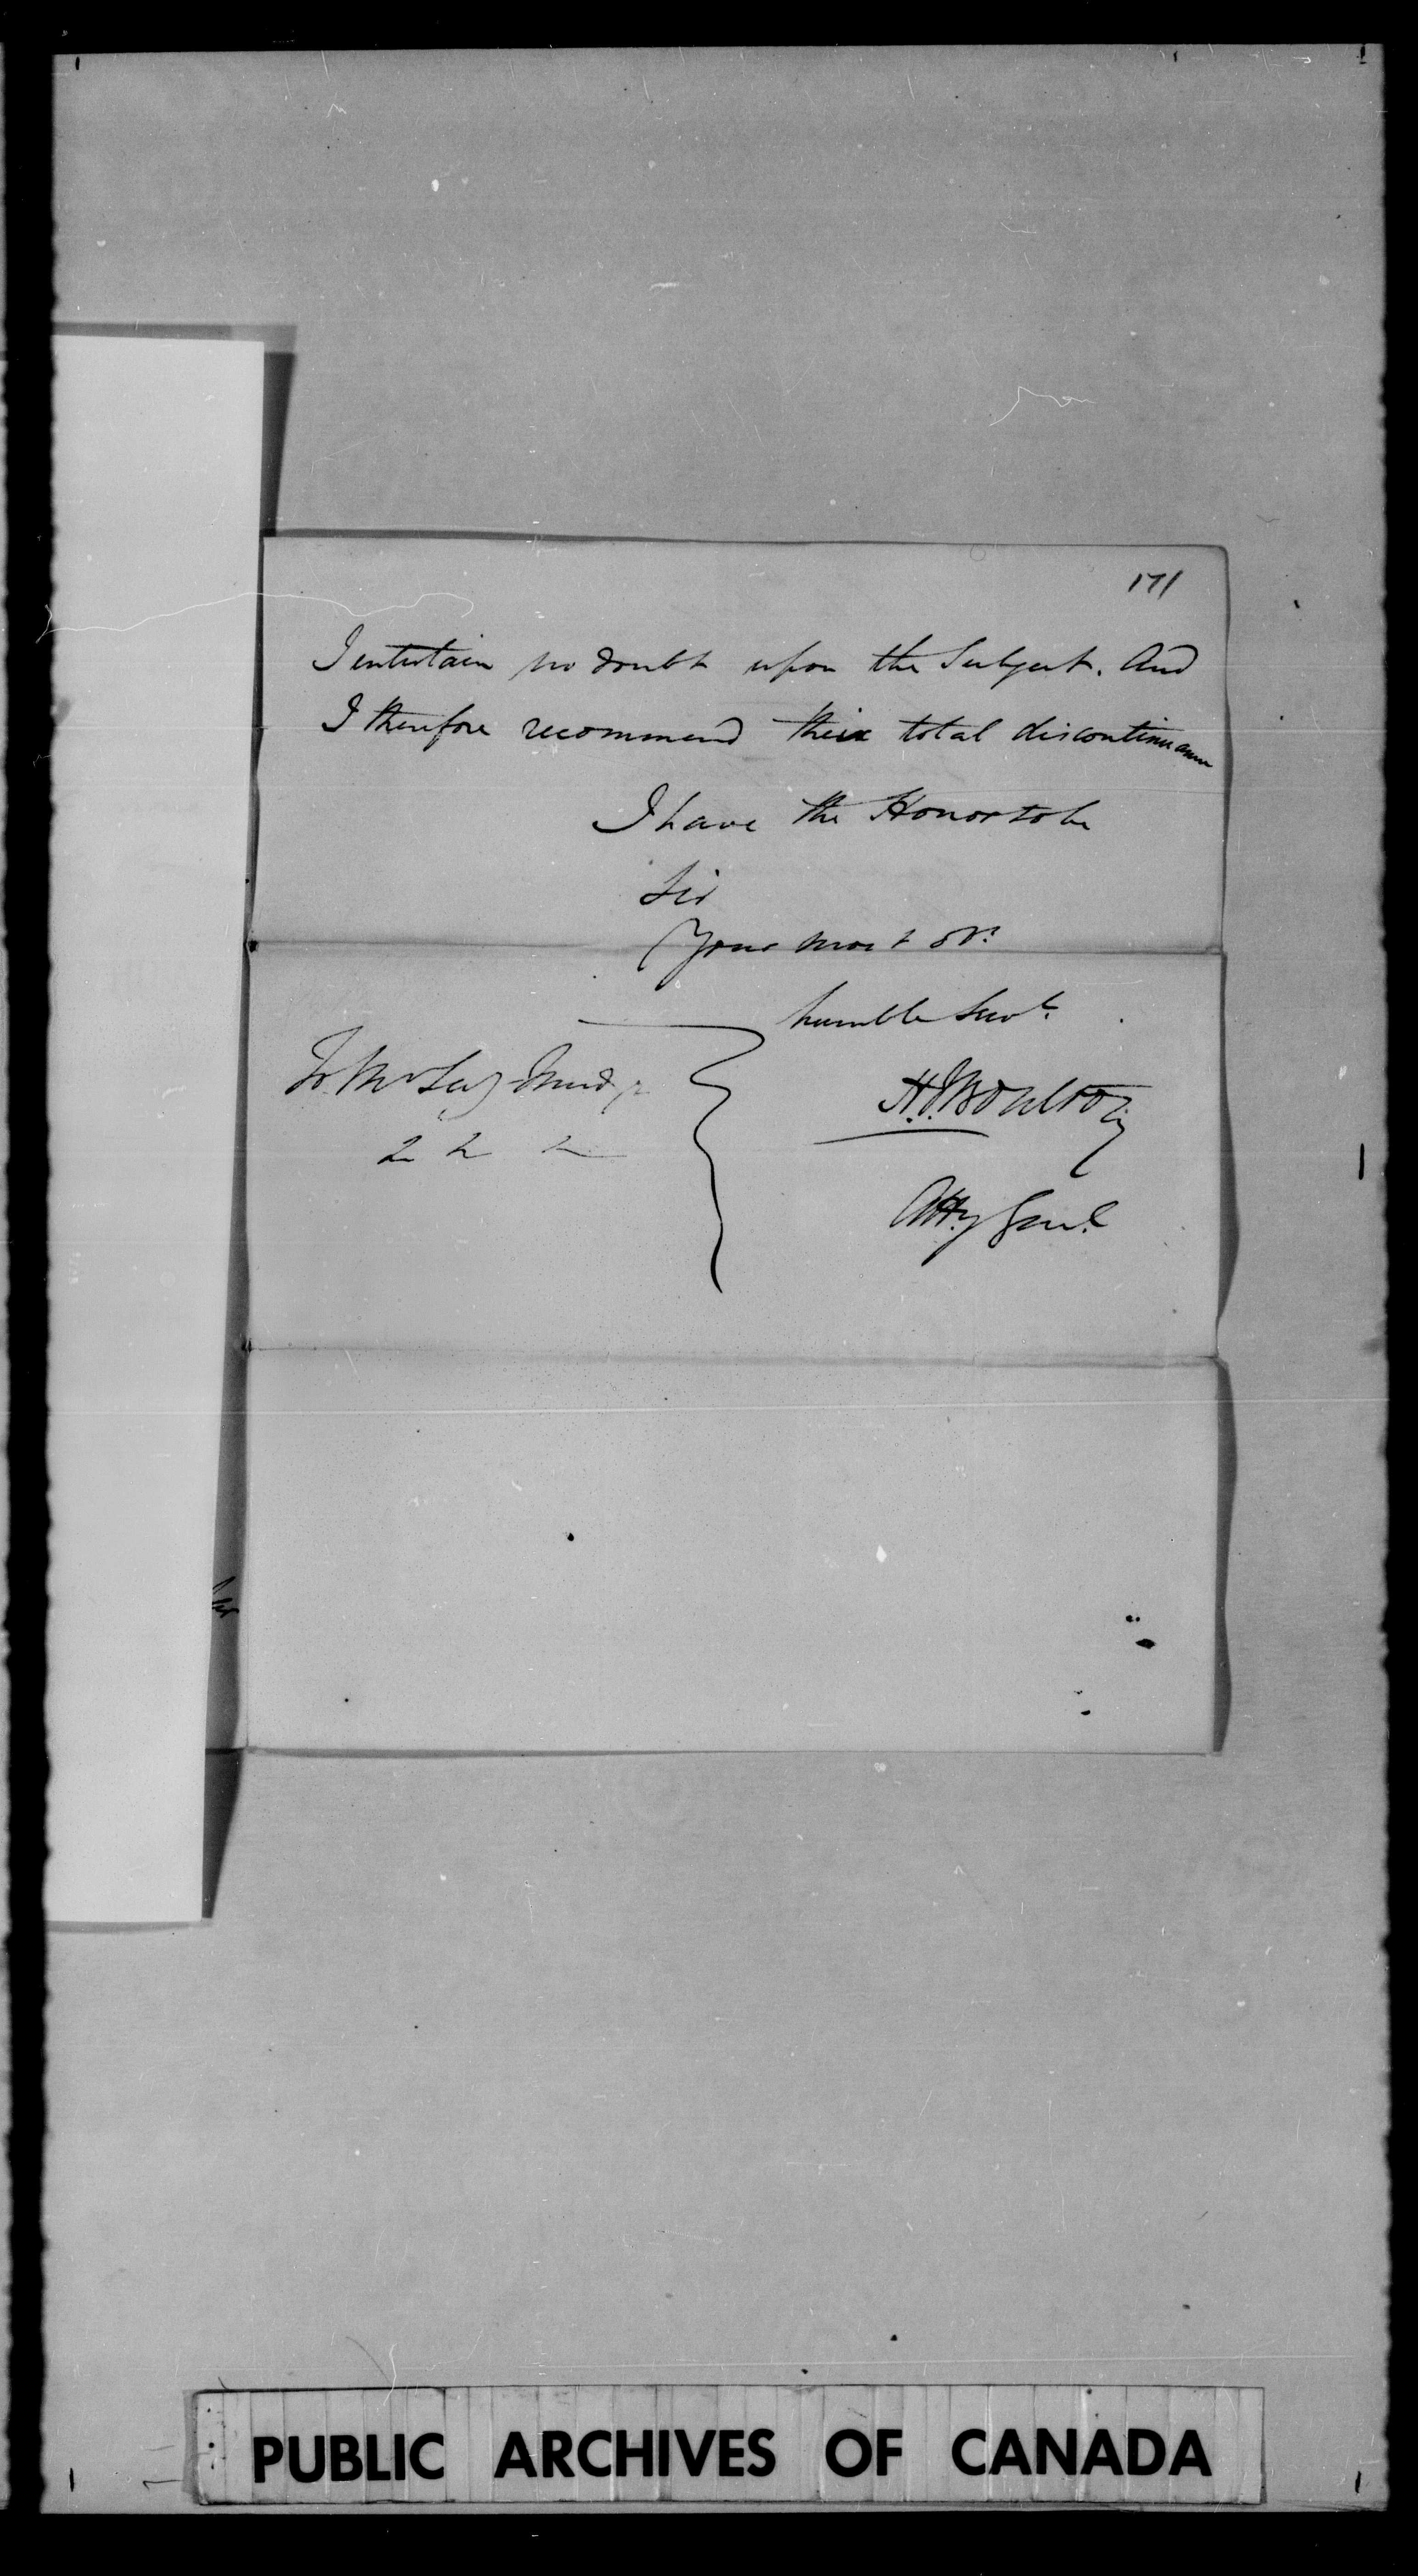 171
I entertain no doubt upon the Subject. And
I therefore recommend their total discontinuance
I have the Honor to be
Sir
Your most obt
humble Servt.
To Mr Secy Mudge
H.J. Boulton
Atty Genl.
PUBLIC ARCHIVES OF CANADA